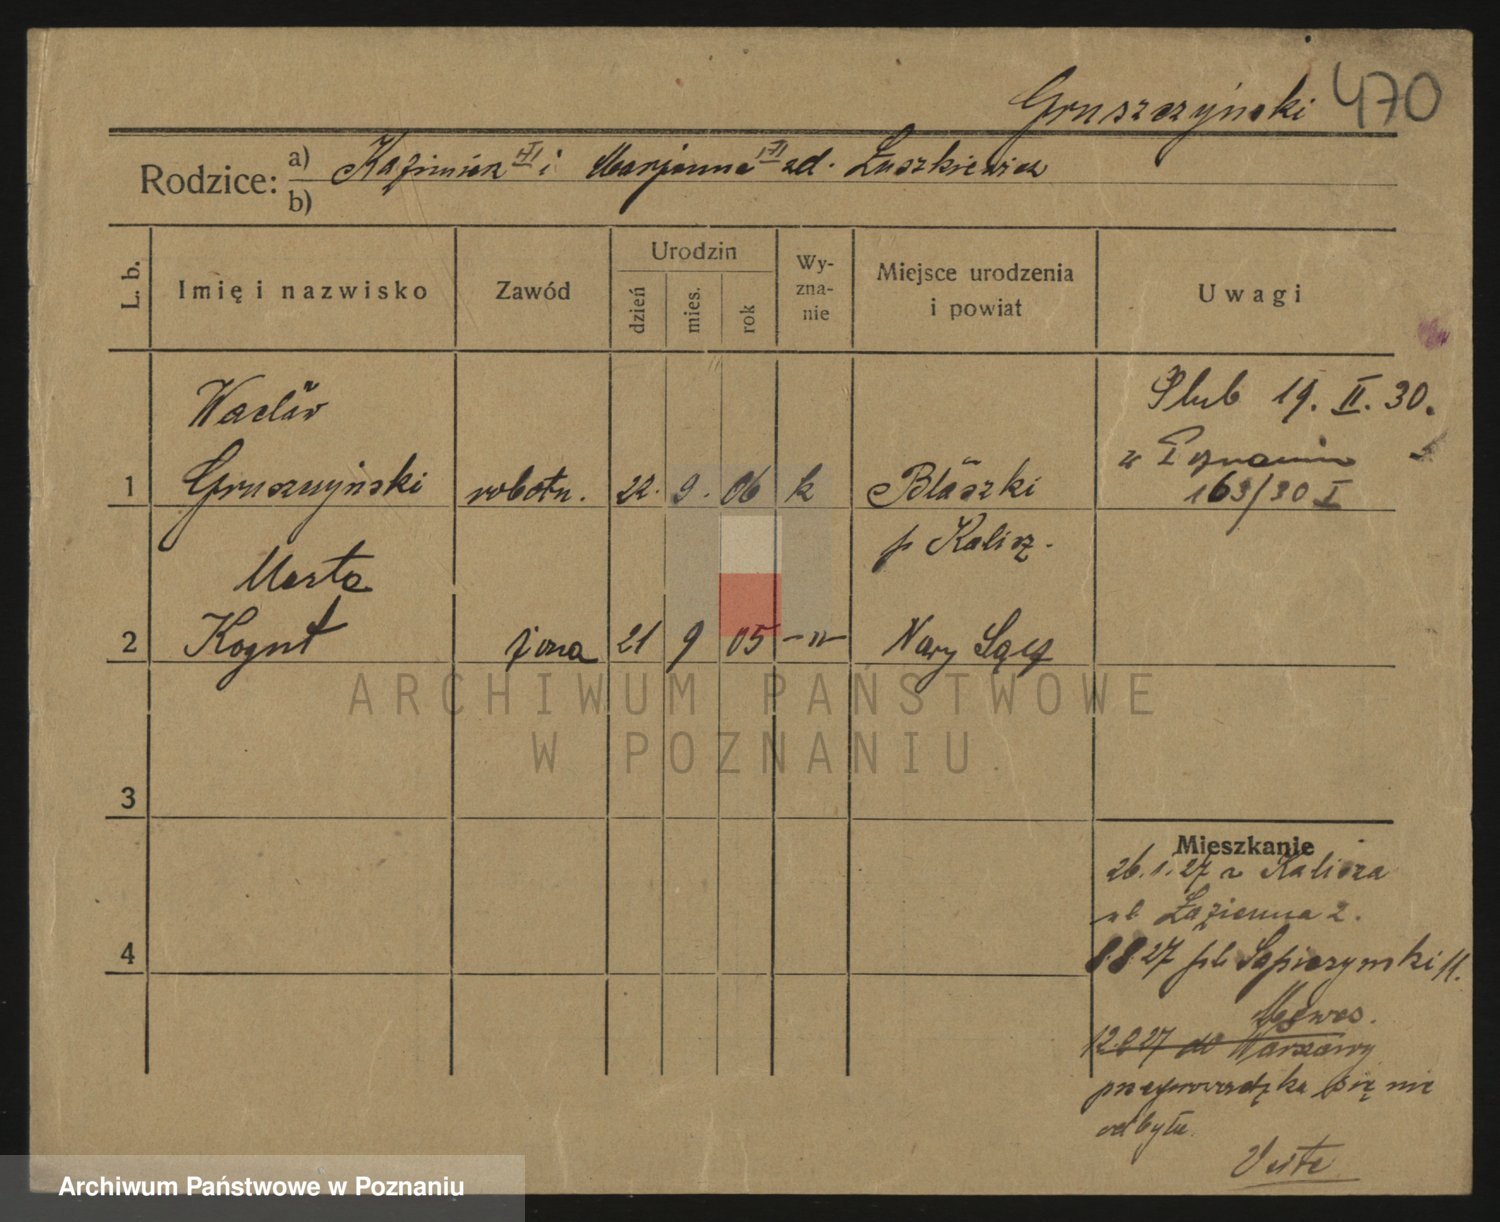 Gruszczyński 470
Rodzice: a) Kazimierz i Marjanna zd. Łuszkiewicz
b)
L. b. Imię i nazwisko Zawód Urodzin dzień mies. rok Wyznanie Miejsce urodzenia i powiat Uwagi
Wacław
Ślub 19. II. 30.
w Poznaniu
1 Gruszczyński robotn. 22. 9. 06 k Błaszki
163/30 I
p Kalisz.
Marta
2 Kogut żona 21 9 05 -"- Nowy Sącz
ARCHIWUM PAŃSTWOWE
W POZNANIU
3
Mieszkanie
26.1.27 z Kalisza
ul Łazienna 2.
4
8.8.27 pl. Sapieżyński 11.
12.8.27 do Warszawy
przeprowadzka się nie
odbyła.
Archiwum Państwowe w Poznaniu